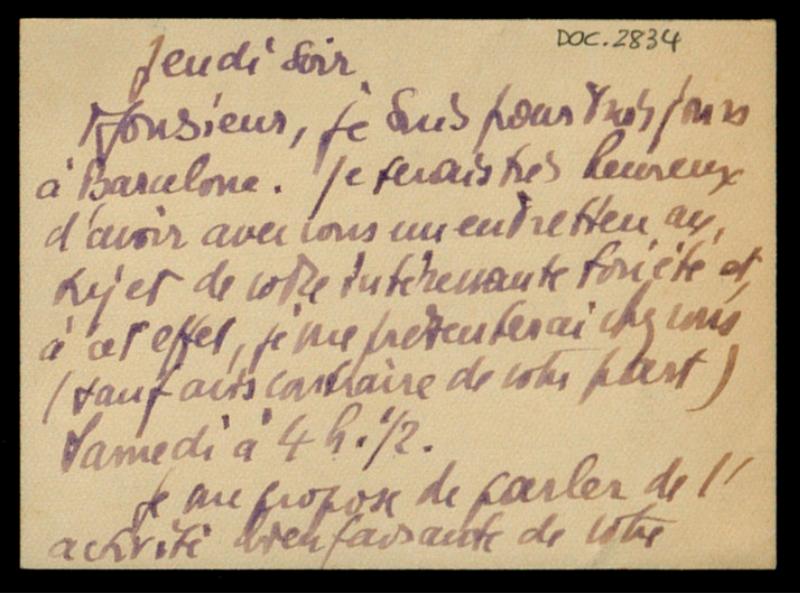 DOC. 2834
Jeudi soir
Monsieur, je suis pour trois jours
à Barcelone. Je serais très heureux
d'avoir avec vous un entretien au,
sujet de votre intéressante société et,
à cet effet, je me présenterai chez vous
(sauf avis contraire de votre part)
Samedi à 4 h. 1/2.
Je me propose de parler de l'
activité bienfaisante de votre